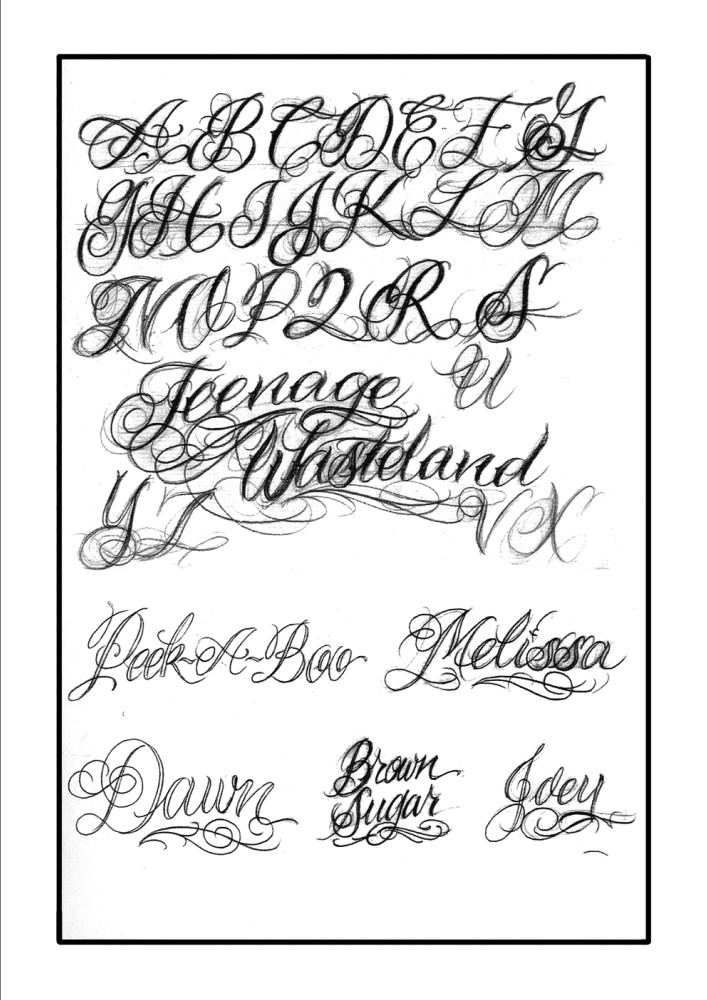 A B C D E F G
G H I J K L M
N O P Q R S
Teenage U
Wasteland
Y Z V X
Peek-A-Boo Melissa
Dawn Brown Sugar Joey